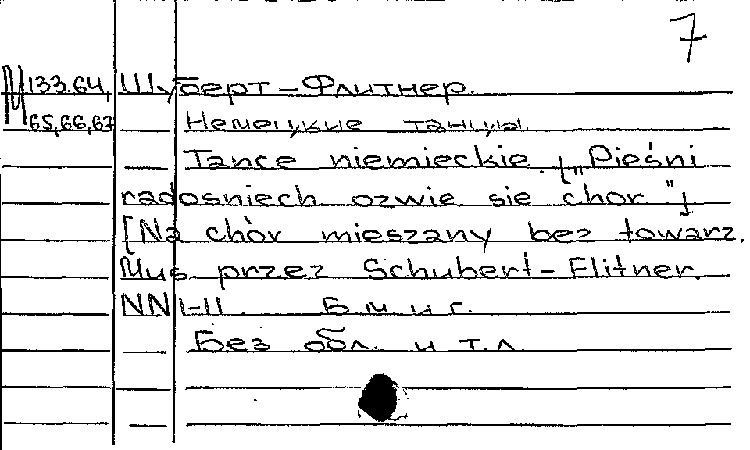 7
М 133.64, Шуберт-Флитнер.
65,66,67 Немецкие танцы.
Tance niemieckie. [„Pieśni
radosniech ozwie sie chor"]
[Na chór mieszany bez towarz.
Mus przez Schubert-Flitner.
NN I-II. Б.м. и г.
Без обл. и т.л